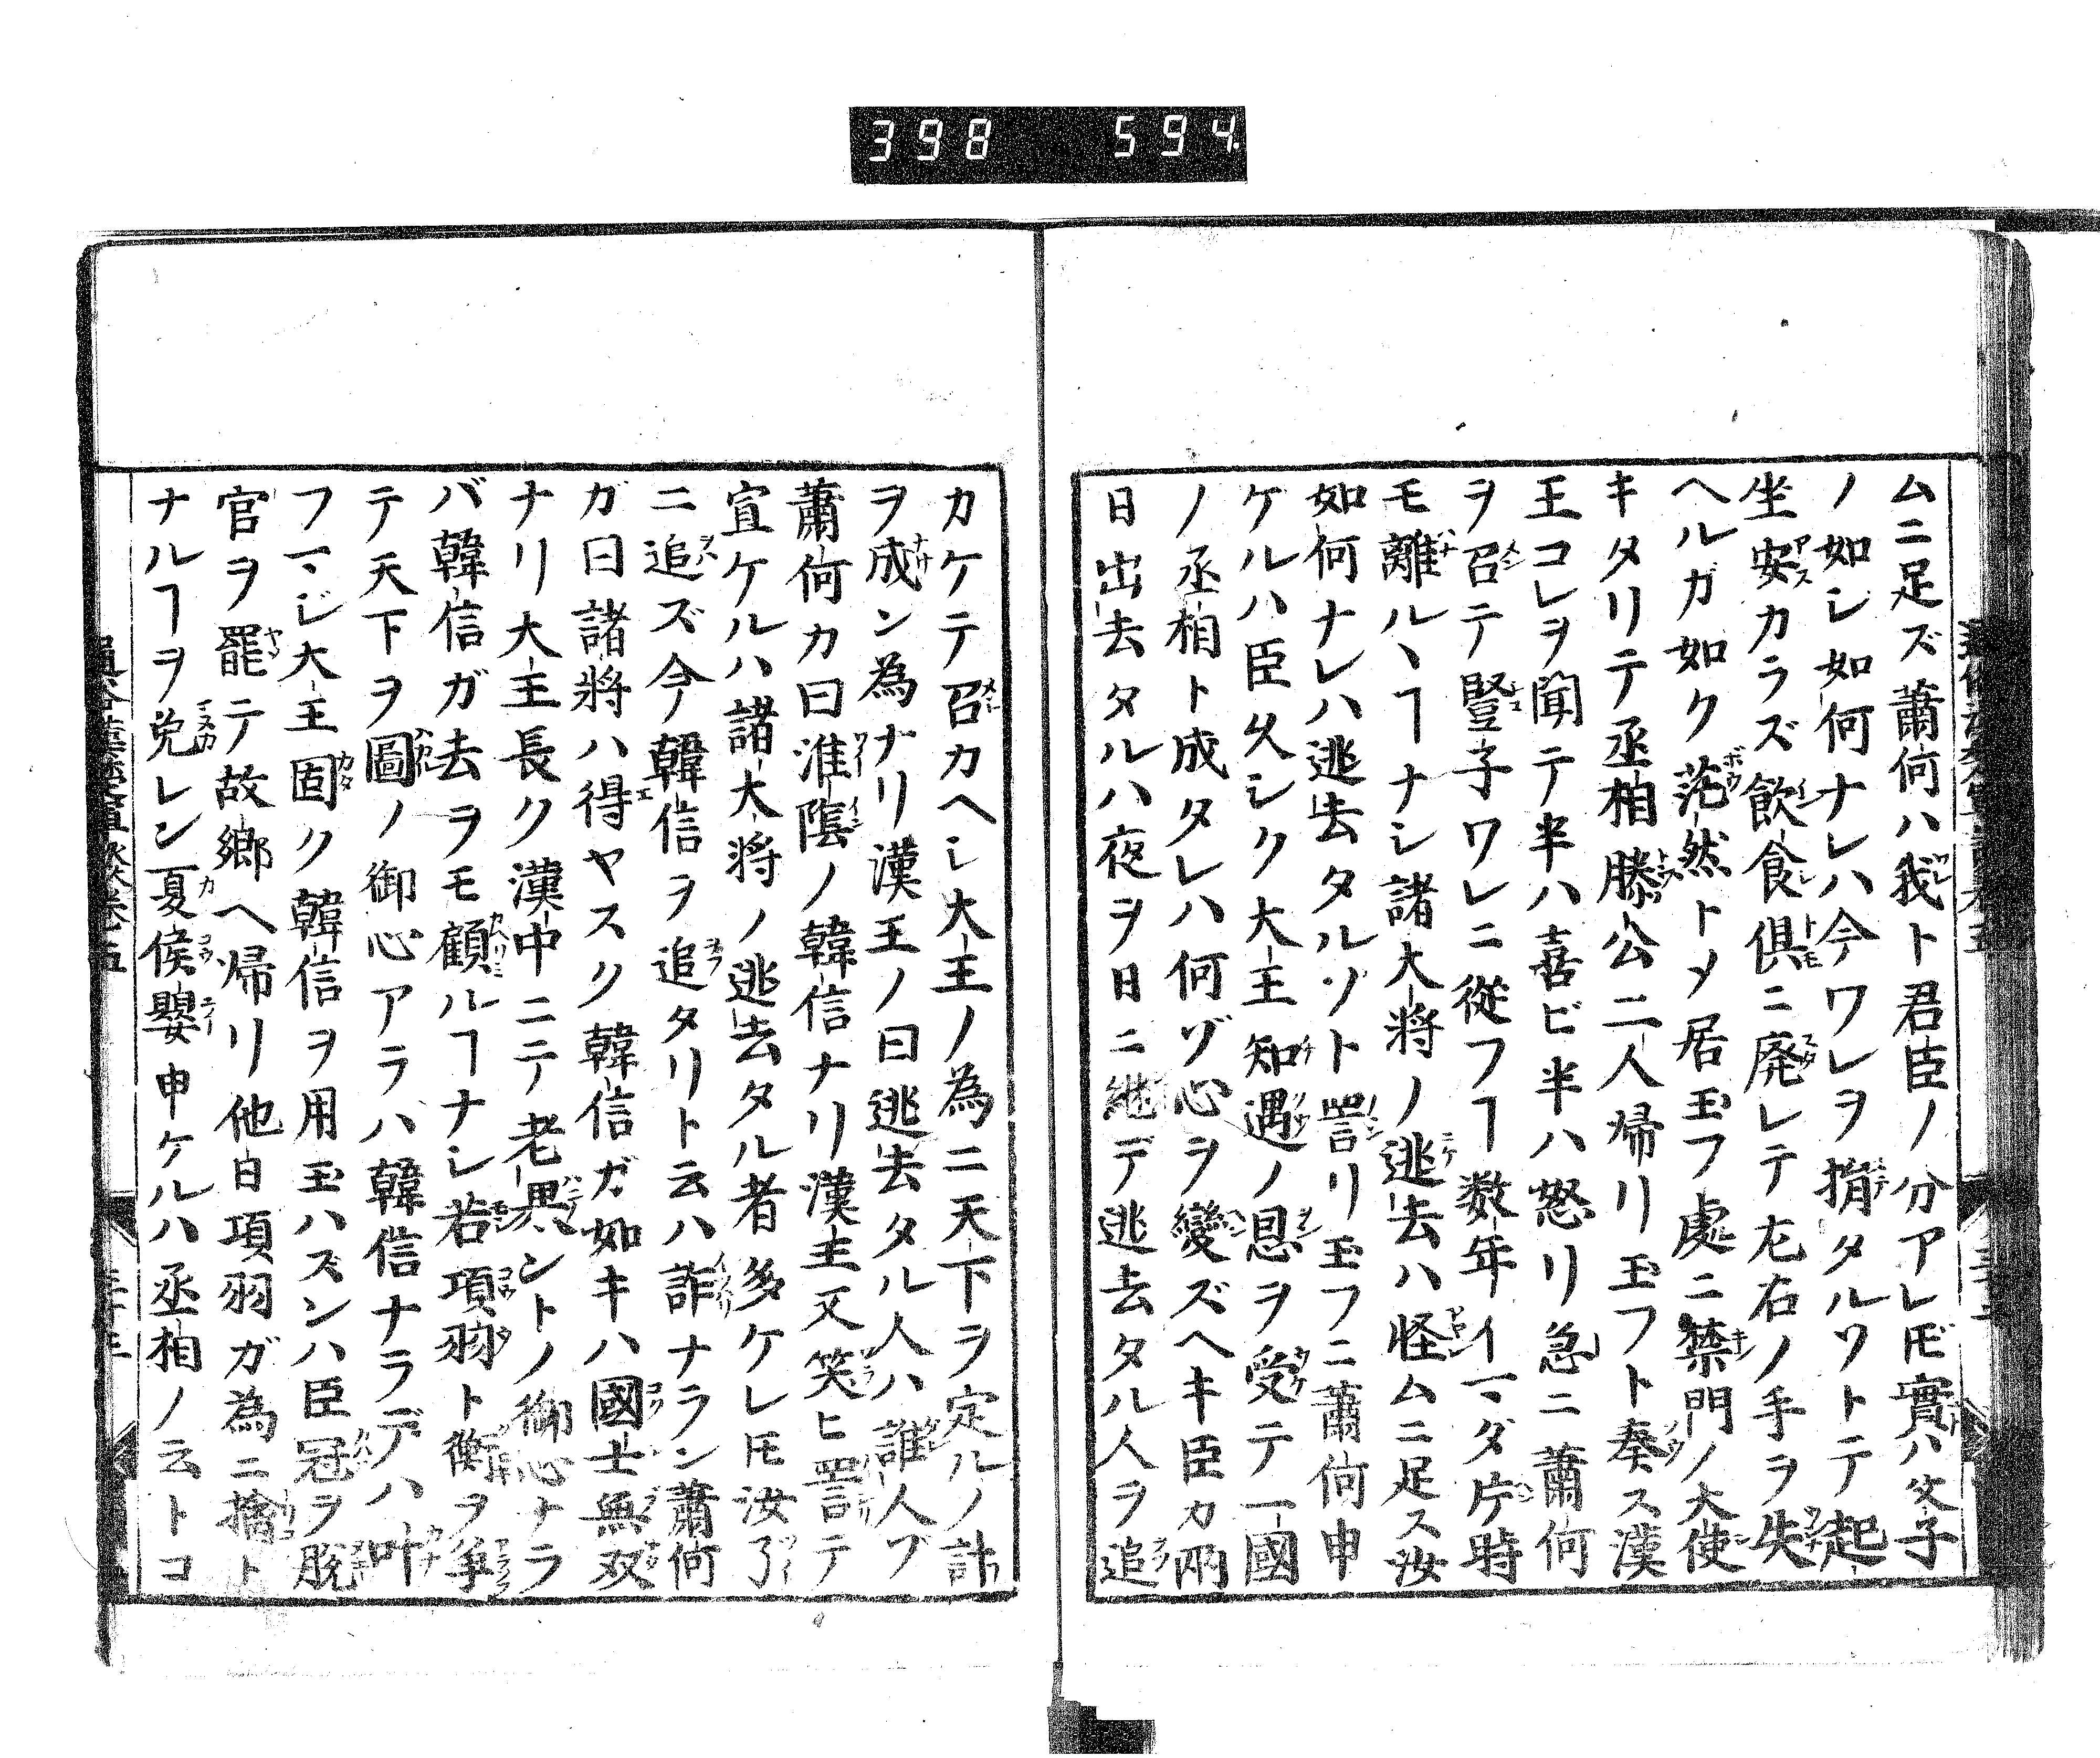 398 594.
ムニ足ズ蕭何ハ我ト君臣ノ分アレ𪜈實ハ父子
ノ如シ如何ナレハ今ワレヲ捐タルヿトテ起
坐安カラズ飲食倶ニ廃レテ左右ノ手ヲ失
ヘルガ如ク茫然トメ居玉フ處ニ禁門ノ大使
キタリテ丞相滕公二人帰リ玉フト奏ス漢
王コレヲ聞テ半ハ喜ビ半ハ怒リ急ニ蕭何
ヲ召テ豎子ワレニ從フヿ数年イマダ片時
モ離ルヽヿナシ諸大将ノ逃去ハ怪ムニ足ス汝
如何ナレハ逃去タルソト詈リ玉フニ蕭何申
ケルハ臣久シク大王知遇ノ恩ヲ受テ一國
ノ丞相ト成タレハ何ゾ心ヲ變ズヘキ臣カ兩
日出去タルハ夜ヲ日ニ継デ逃去タル人ヲ追
カケテ召カヘシ大王ノ為ニ天下ヲ定ルノ計
ヲ成ン為ナリ漢王ノ曰逃去タル人ハ誰人ゾ
蕭何カ曰淮陰ノ韓信ナリ漢主又笑ヒ詈テ
宣ケルハ諸大将ノ逃去タル者多ケレ𪜈汝了
ニ追ズ今韓信ヲ追タリト云ハ詐ナラン蕭何
ガ曰諸將ハ得ヤスク韓信ガ如キハ國士無双
ナリ大王長ク漢中ニテ老果ントノ御心ナラ
バ韓信ガ去ヲモ顧ルヿナシ若項羽ト衡ヲ爭
テ天下ヲ圖ノ御心アラハ韓信ナラデハ叶
フマシ大王固ク韓信ヲ用玉ハズンハ臣冠ヲ脱
官ヲ罷テ故郷ヘ帰リ他日項羽ガ為ニ擒ト
ナルヿヲ免レン夏侯嬰申ケルハ丞相ノ云トコ